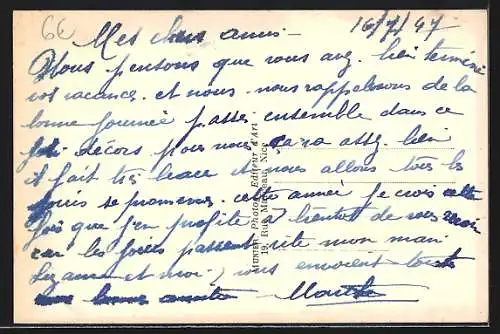 6E
Mes chers amis - 16/7/47
Nous pensons que vous avez bien terminé
vos vacances. et nous nous rappelerons de la
bonne journée passer ensemble dans ce
joli décors pour nous ça va assez bien
il fait très beau et nous allons tous les
jours se promener. cette année je crois cette
fois que j'en profite à bientôt de vous revoir
car les jours passent vite mon mari
Suzanne et moi vous envoient toute
bonne amitié Marthe
MUNIER Photo Editeur d'Art
19, Rue Marceau, Nice